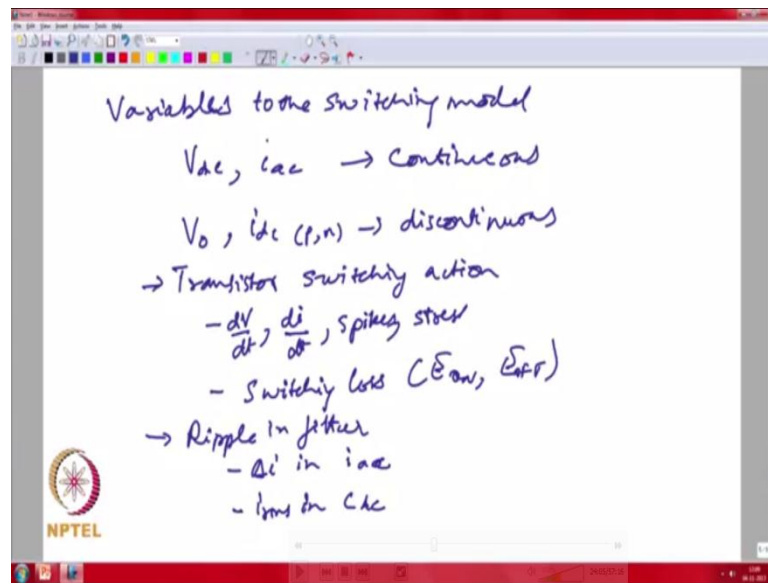 Variables to the switching model
Vdc, iac → Continuous
Vo, idc (p,n) → discontinuous
→ Transistor switching action
- dV/dt, di/dt, spikes stress
- Switching loss (EON, EOFF)
→ Ripple in filter
- Δi in iac
- irms in Cdc
NPTEL